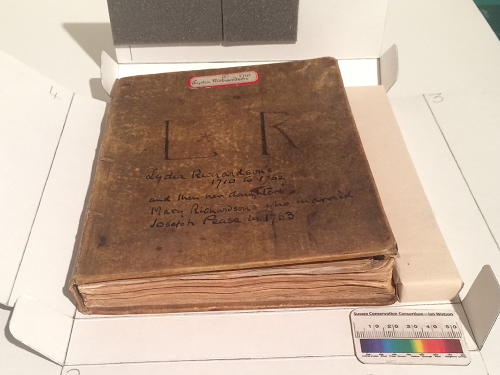 Lydia Richardson
L R
Lydia Richardson,
1710 to 1762,
and then her daughter,
Mary Richardson, who married
Joseph Pease in 1763
4
3
Sussex Conservation Consortium - Ian Watson
10 20 30 40 50